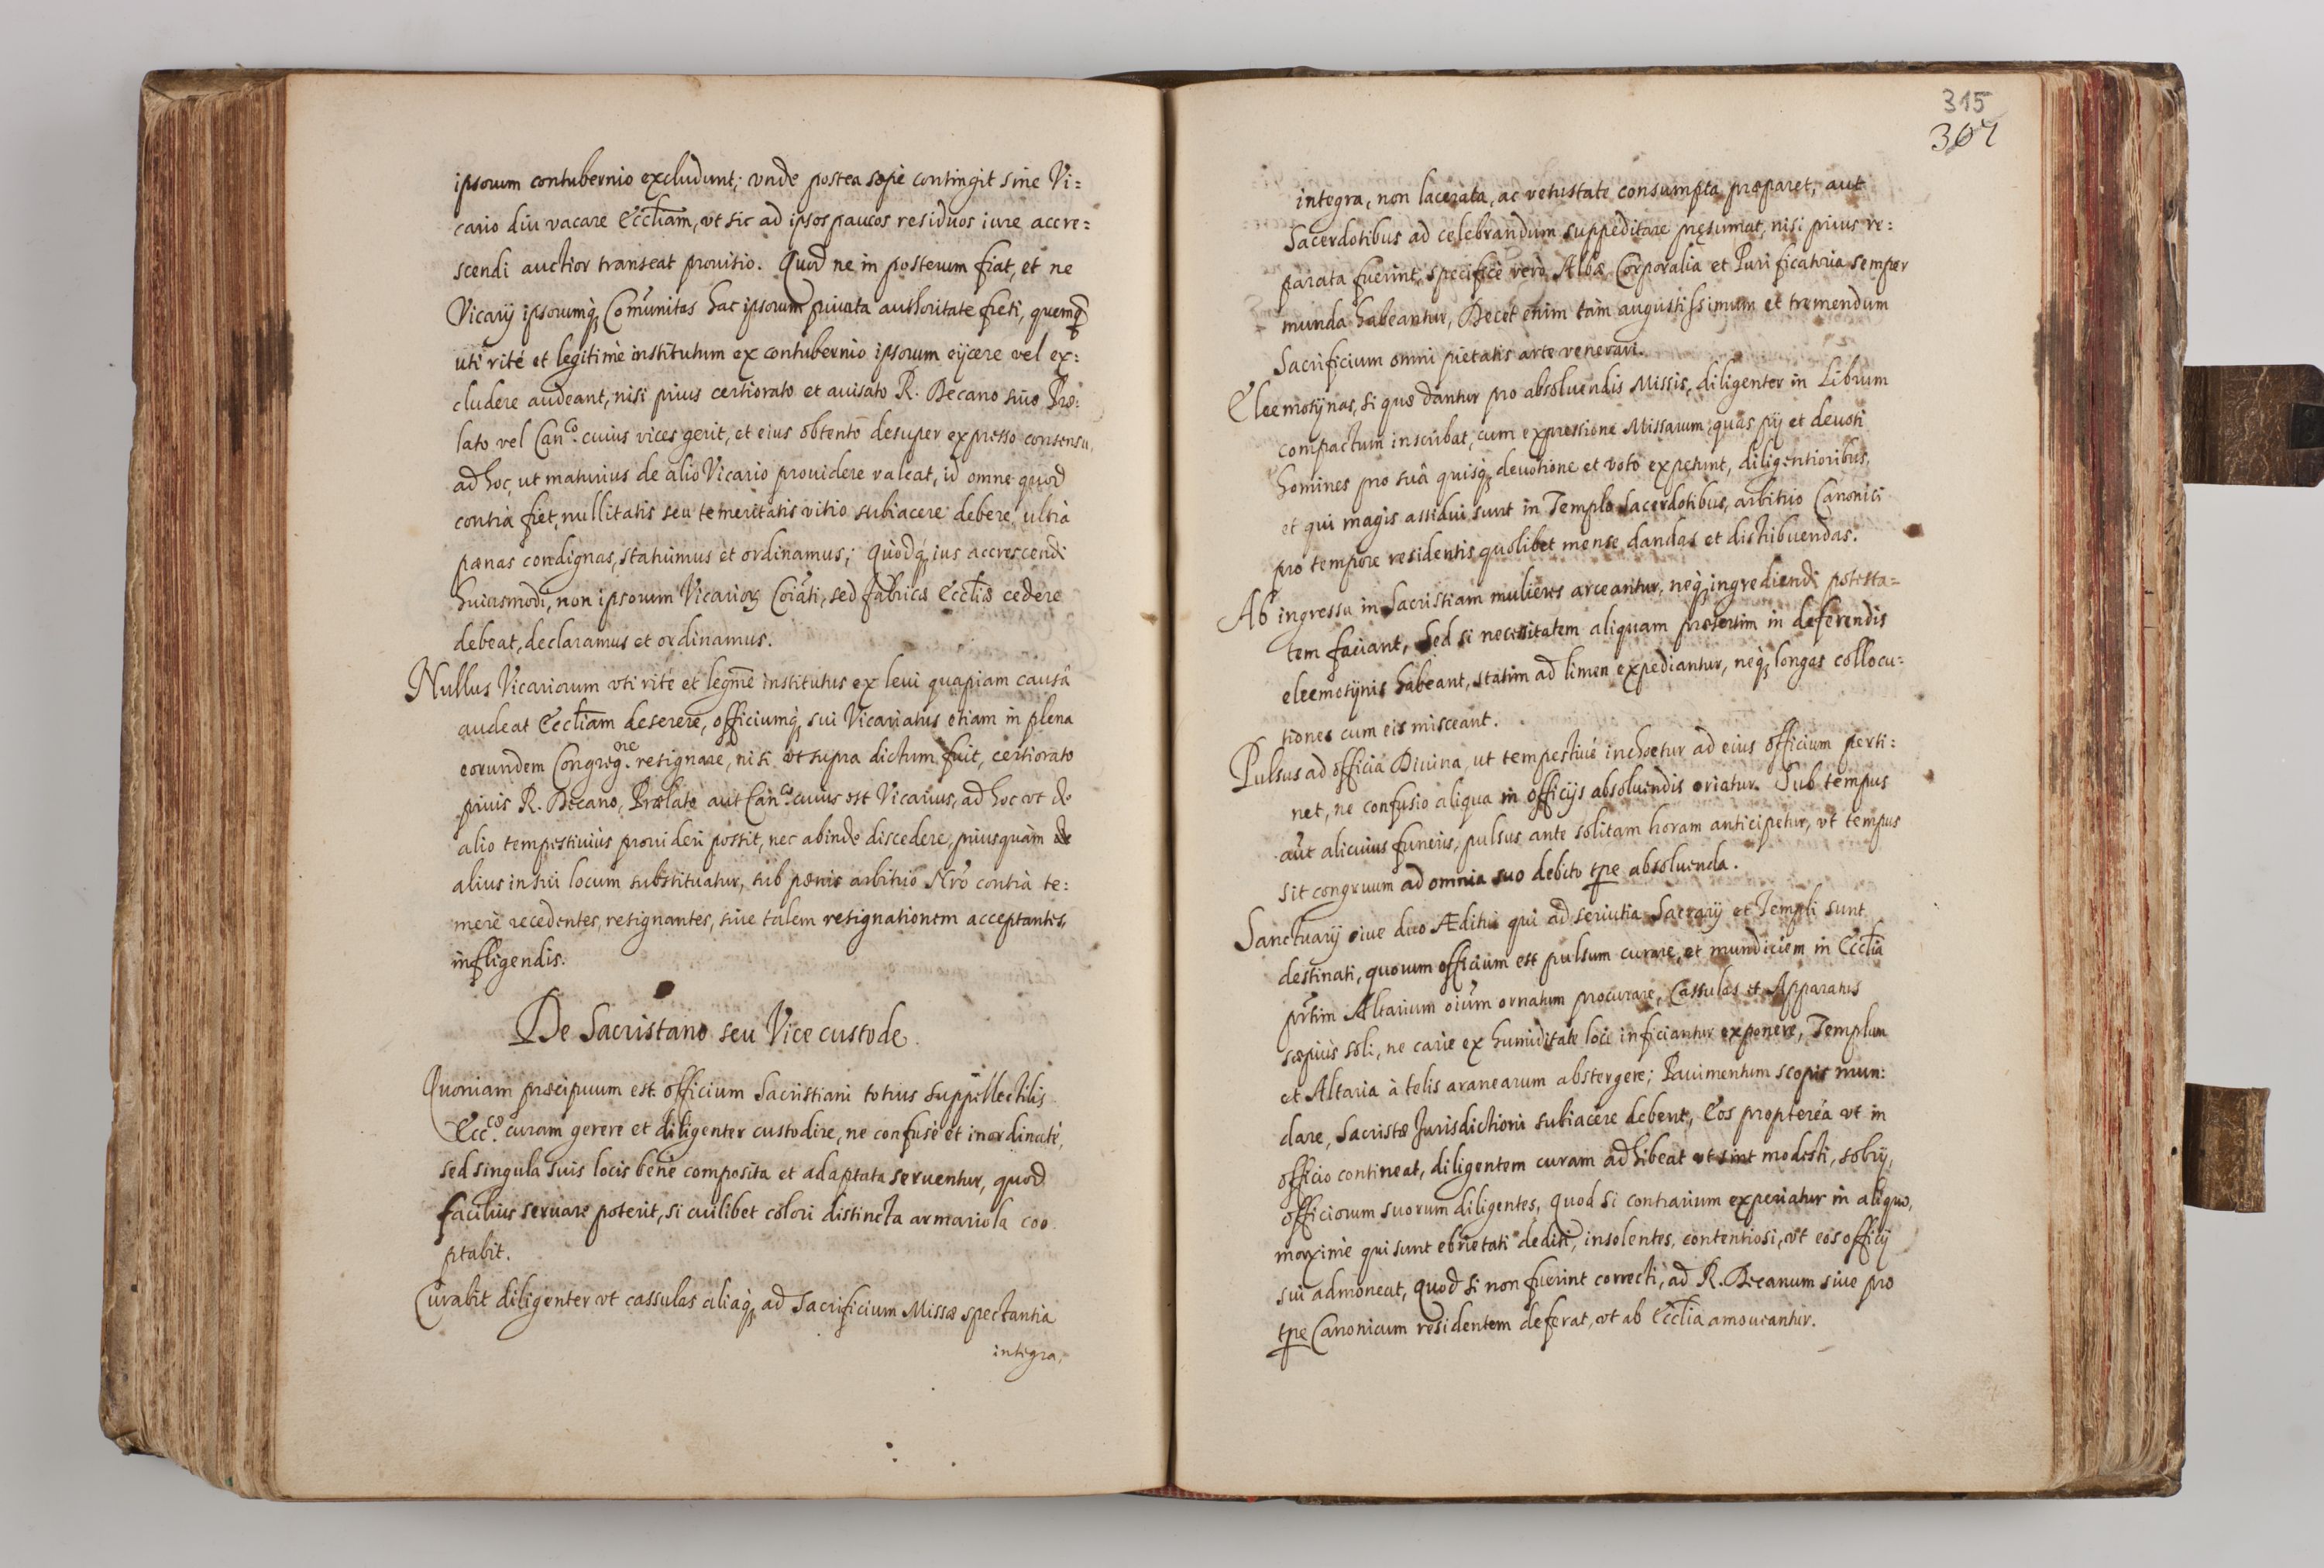 ipsorum contubernio excludunt; vnde postea sæpè contingit sine Vi=
cario diu vacare Eccl̃iam, vt sic ad ipsos paucos residuos iure accre=
scendi auctior transeat prouisio. Quod ne in posterum fiat, et ne
Vicarij ipsorumq; Com̃unitas hac ipsorum priuata authoritate freti, quemq̃
uti rité et legitimè institutum ex contubernio ipsorum eijcere vel ex=
cludere audeant, nisi prius certiorato et auisato R. Decano siue Præ=
lato vel Can.co cuius vices gerit, et eius obtento desuper expresso consensu,
ad hoc, ut maturius de alio Vicario prouidere valeat, id omne quod
contrà fiet, nullitatis seu temeritatis vitio subiacere debere, ultrà
pænas condignas, statuimus et ordinamus; Quòdq; ius accrescendi
huiusmodi, non ipsorum Vicarioꝝ Coĩati, sed fabricæ Eccl̃iæ cedere
debeat, declaramus et ordinamus.
Nullus Vicariorum vti rité et legm̃è institutus ex leui quapiam causâ
audeat Eccl̃iam deserere, officiumq; sui Vicariatus etiam in plena
eorundem Congreg.ne resignare, nisi vt supra dictum fuit, certiorato
priùs R. Decano, Prælato aut Can.co cuius est Vicarius, ad hoc vt de
alio tempestiuiùs prouideri possit, nec abinde discedere, priusquàm de
alius in sui locum substituatur, sub pænis arbitrio Nr̃o contrà te=
merè recedentes, resignantes, siue talem resignationem acceptantes,
infligendis.
De Sacristano seu Vice custode.
Quoniam præcipuum est officium Sacristiani totius suppellectilis
Ecc.cæ curam gerere et diligenter custodire, ne confusè et inordinaté,
sed singula suis locis benè composita et adaptata seruentur, quod
facilius seruare poterit, si cuilibet colori distincta armariola coo
ptabit.
Curabit diligenter vt cassulas aliaq; ad Sacrificium Missæ spectantia
integra,
315
307
integra, non lacerata, ac vetustate consumpta præparet, aut
Sacerdotibus ad celebrandum suppeditare pręsumat, nisi prius re=
parata fuerint, specificè verò Albæ Corporalia et Purificatoria semper
munda habeantur, Decet enim tàm augustissimum et tremendum
Sacrificium omni pietatis arte venerari.
Eleemosynas, si quæ dantur pro absoluendis Missis, diligenter in Librum
compactum inscribat, cum expressione Missarum, quas pij et deuoti
homines pro suâ quisq; deuotione et voto expetunt, diligentioribus,
et qui magis assidui sunt in Templo Sacerdotibus, arbitrio Canonici
pro tempore residentis quolibet mense dandas et distribuendas.
Ab ingressu in Sacristiam mulieres arceantur, neq; ingrediendi potesta=
tem faciant, Sed si necessitatem aliquam præsertim in deferendis
eleemosynis habeant, statim ad limen expediantur, neq; longas collocu=
tiones cum eis misceant.
Pulsus ad officia Diuina, ut tempestiué inchoetur ad eius officium perti=
net, ne confusio aliqua in officijs absoluendis oriatur. Sub tempus
aut alicuius funeris, pulsus ante solitam horam anticipetur, vt tempus
sit congruum ad omnia suo debito tp̃re absoluenda.
Sanctuarij siue dico Æditui qui ad seruitia Sacrarij et Templi sunt
destinati, quorum officium est pulsum curare, et mundiciem in Eccl̃ia
pr̃tim Altarium oĩum ornatum procurare, Cassulas et Apparatus
sæpius soli, ne carie ex humiditate loci inficiantur exponere, Templum
et Altaria à telis aranearum abstergere; Pauimentum scopis mun=
dare, Sacristæ Jurisdictioni subiacere debent, Eos proptereà vt in
officio contineat, diligentem curam adhibeat vt sint modesti, sobrij,
officiorum suorum diligentes, Quod si contrarium experiatur in aliquo,
maximè qui sunt ebrietati dediti, insolentes, contentiosi, vt eos officij
sui admoneat, Quod si non fuerint correcti, ad R. Decanum siue pro
tp̃re Canonicum residentem deferat, vt ab Eccl̃ia amoueantur.